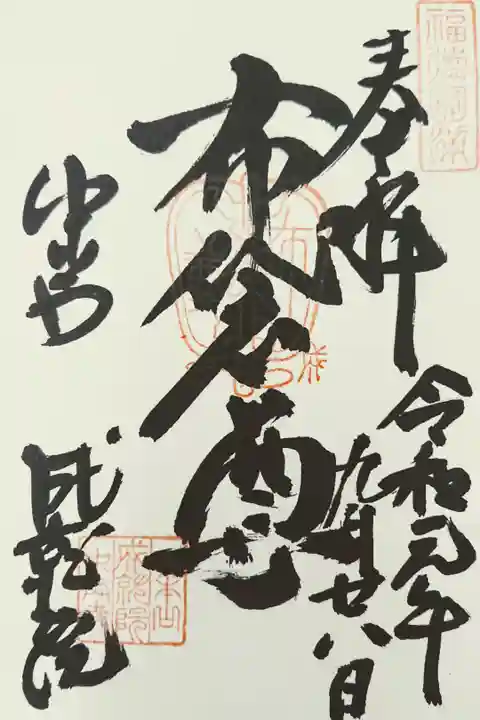 奉拝
令和元年
九月廿八日
布袋尊
中山寺
成就院